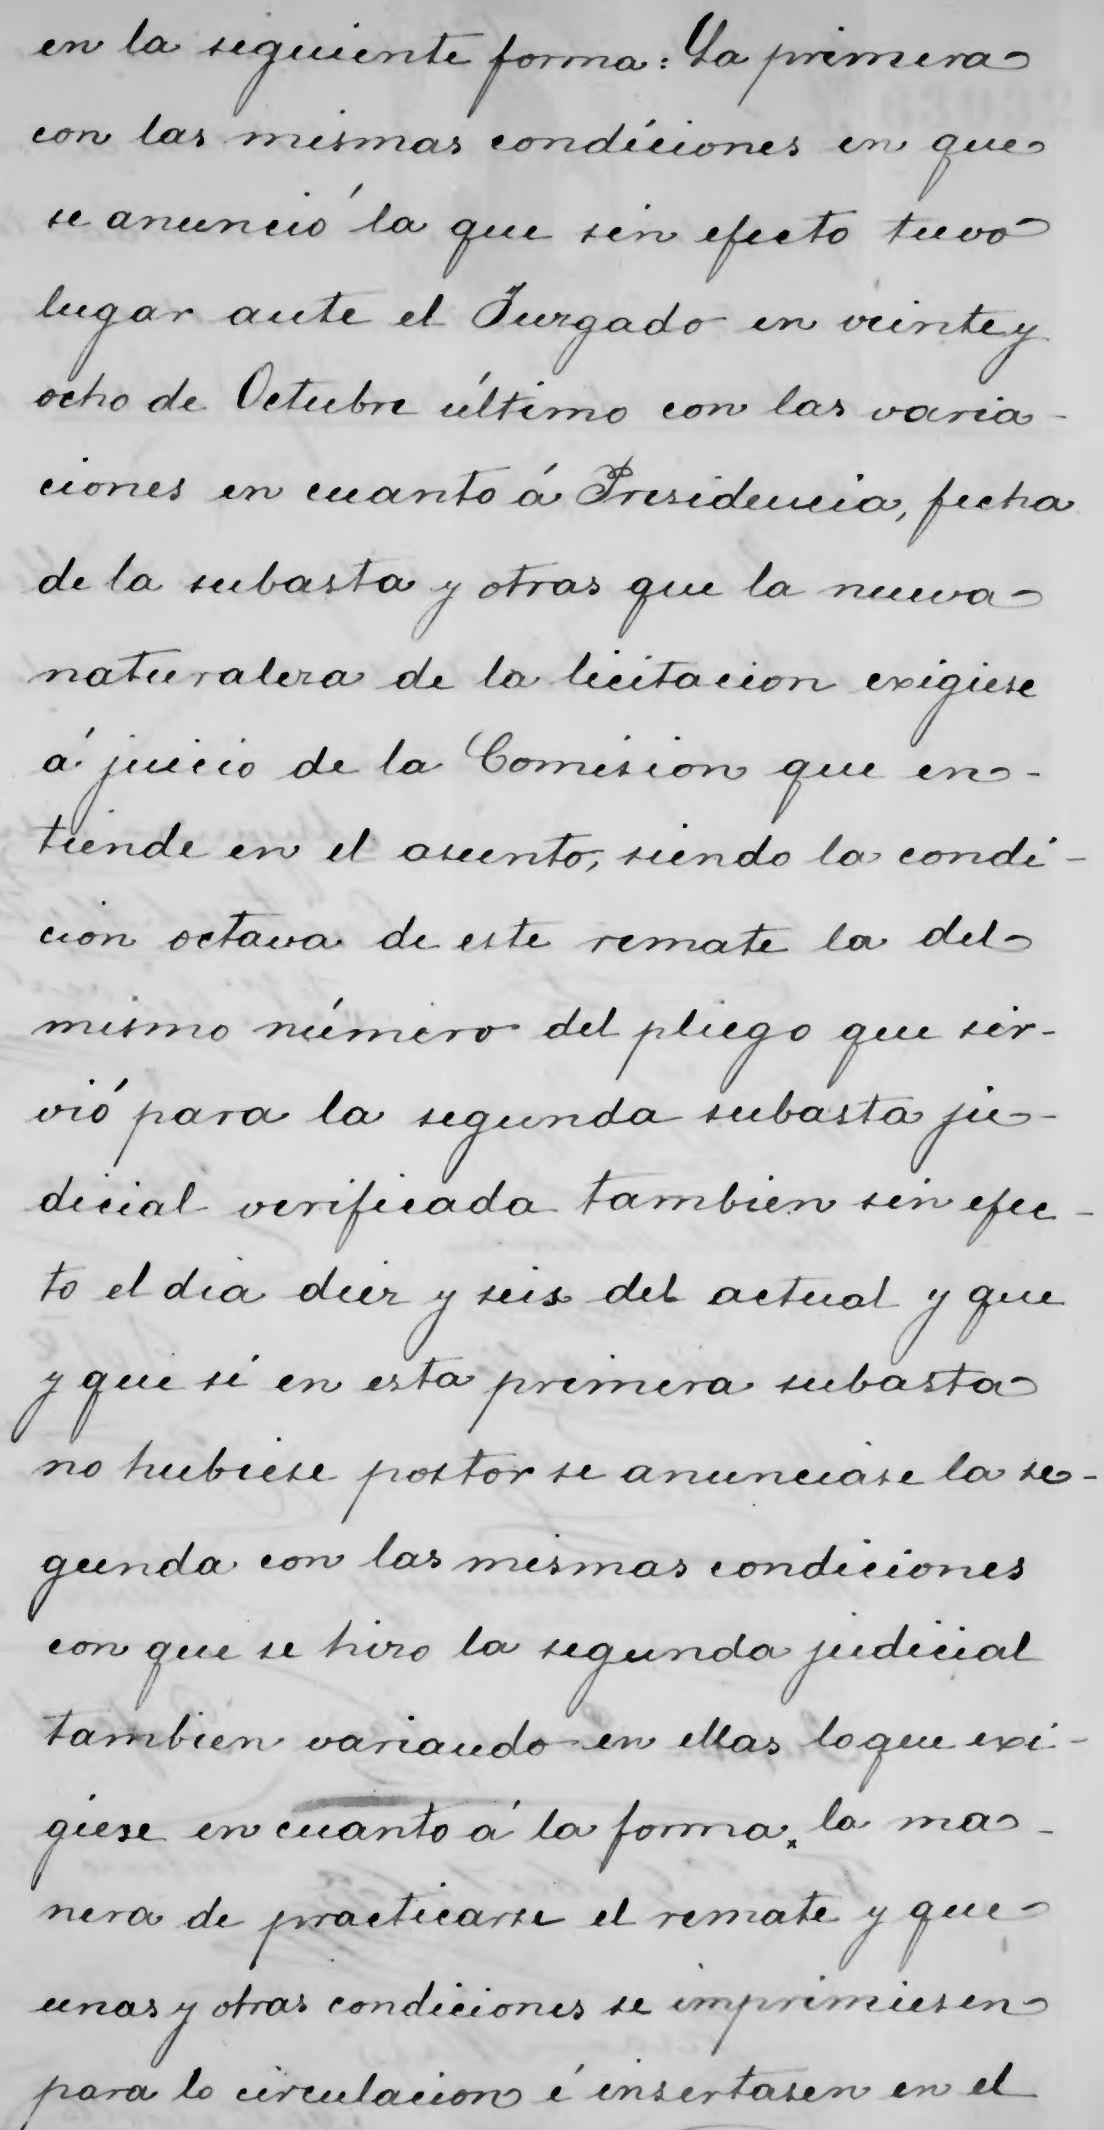 en la siguiente forma: La primera
con las mismas condiciones en que
se anunció la que sin efecto tuvo
lugar ante el Juzgado en veinte y
ocho de Octubre último con las varia-
ciones en cuanto á Presidencia, fecha
de la subasta y otras que la nueva
naturaleza de la licitacion exigiese
á juicio de la Comision que en-
tiende en el asunto, siendo la condi-
cion octava de este remate la del
mismo número del pliego que sir-
vió para la segunda subasta ju-
dicial verificada tambien sin efec-
to el dia diez y seis del actual y que
y que si en esta primera subasta
no hubiese postor se anunciase la se-
gunda con las mismas condiciones
con que se hizo la segunda judicial
tambien variando en ellas lo que exi-
giese en cuanto á la forma, la ma-
nera de practicarse el remate y que
unas y otras condiciones se imprimiesen
para lo circulacion é insertasen en el